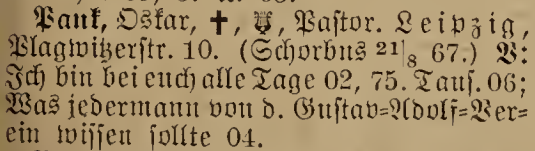 Pank, Oskar, †, Pastor. Leipzig,
Plagwitzerstr. 10. (Schorbus 21|8 67.) V:
Ich bin bei euch alle Tage 02, 75. Tauf. 06;
Was jedermann von d. Gustav=Adolf=Ver=
ein wissen sollte 04.